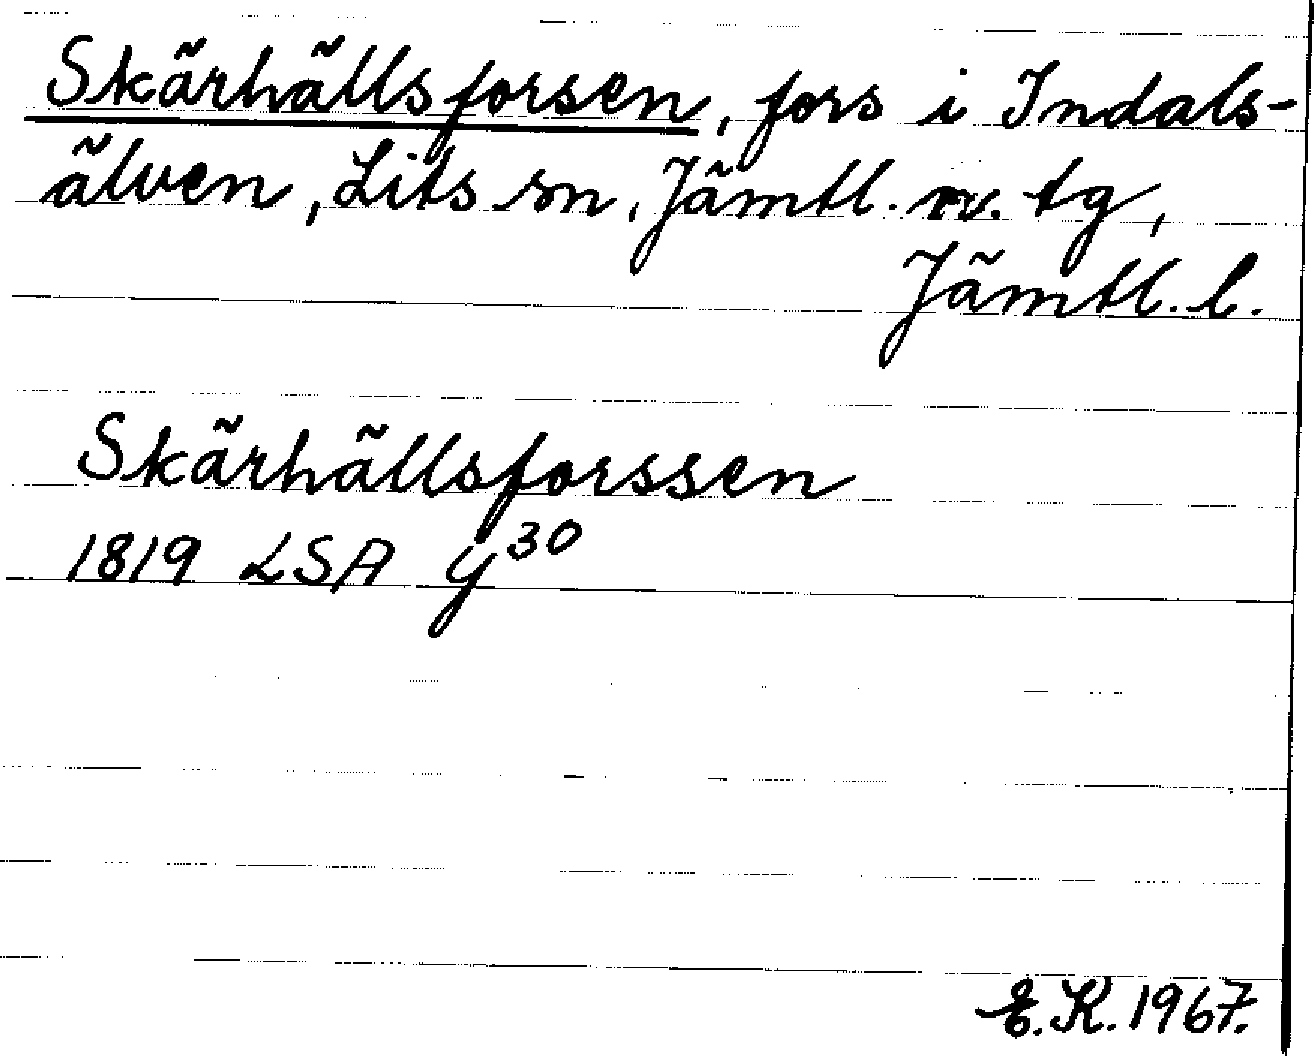 Skärhällsforsen, fors i Indals-
älven, Lits sn, Jämtl. v. tg,
Jämtl. l.
Skärhällsforssen
1819 LSA y³⁰
E.K. 1967.